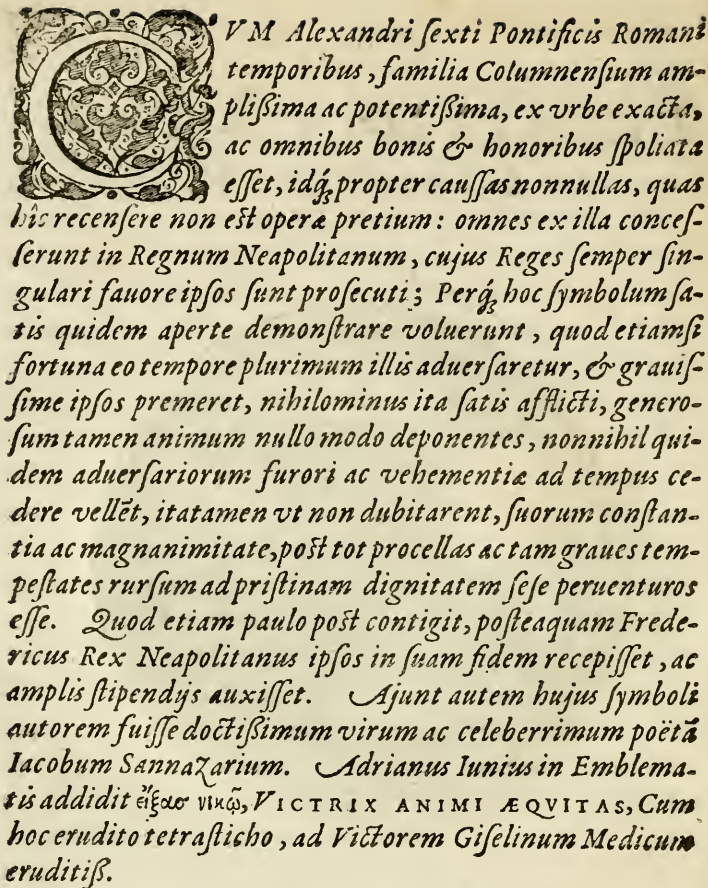 CVM Alexandri ſexti Pontificis Romani
temporibus, familia Columnenſium am-
plißima ac potentißima, ex vrbe exacta,
ac omnibus bonis & honoribus ſpoliata
eſſet, idq́ꝫ propter cauſſas nonnullas, quas
hîc recenſere non eſt operæ pretium: omnes ex illa conceſ-
ſerunt in Regnum Neapolitanum, cujus Reges ſemper ſin-
gulari fauore ipſos ſunt proſecuti; Perq́ꝫ hoc ſymbolum ſa-
tis quidem aperte demonſtrare voluerunt, quod etiamſi
fortuna eo tempore plurimum illis aduerſaretur, & grauiſ-
ſime ipſos premeret, nihilominus ita ſatis afflicti, genero-
ſum tamen animum nullo modo deponentes, nonnihil qui-
dem aduerſariorum furori ac vehementiæ ad tempus ce-
dere vellēt, ita tamen vt non dubitarent, ſuorum conſtan-
tia ac magnanimitate, poſt tot procellas ac tam graues tem-
peſtates rurſum ad priſtinam dignitatem ſeſe peruenturos
eſſe. Quod etiam paulo poſt contigit, poſteaquam Frede-
ricus Rex Neapolitanus ipſos in ſuam fidem recepiſſet, ac
amplis ſtipendijs auxiſſet. Ajunt autem hujus ſymboli
autorem fuiſſe doctißimum virum ac celeberrimum poëtā
Iacobum Sannazarium. Adrianus Iunius in Emblema-
tis addidit εἴξας νικῶ, VICTRIX ANIMI ÆQVITAS, Cum
hoc erudito tetraſticho, ad Victorem Giſelinum Medicum
eruditiß.